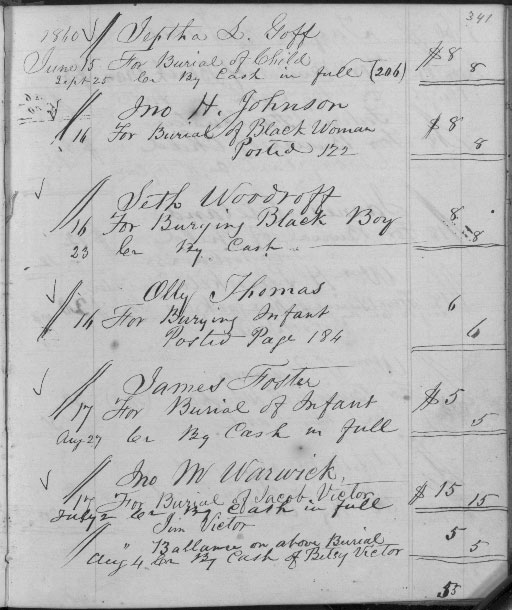 341
1860 Jeptha L. Goff
June 15 For Burial of Child $8
Sept 25 Cr By Cash in full (206) 8
Jno H. Johnson
16 For Burial of Black Woman $8
Posted 122 8
Seth Woodroff
16 For Burying Black Boy 8
23 Cr By Cash 8
Olly Thomas
16 For Burying Infant 6
Posted Page 184 6
James Foster
17 For Burial of Infant $5
Aug 27 Cr By Cash in full 5
Jno M Warwick,
17 For Burial of Jacob Victor $15 15
July 2 Cr By Cash in full
Jim Victor 5
" Ballance on above Burial 5
Aug 4 Cr By Cash of Betsy Victor
55